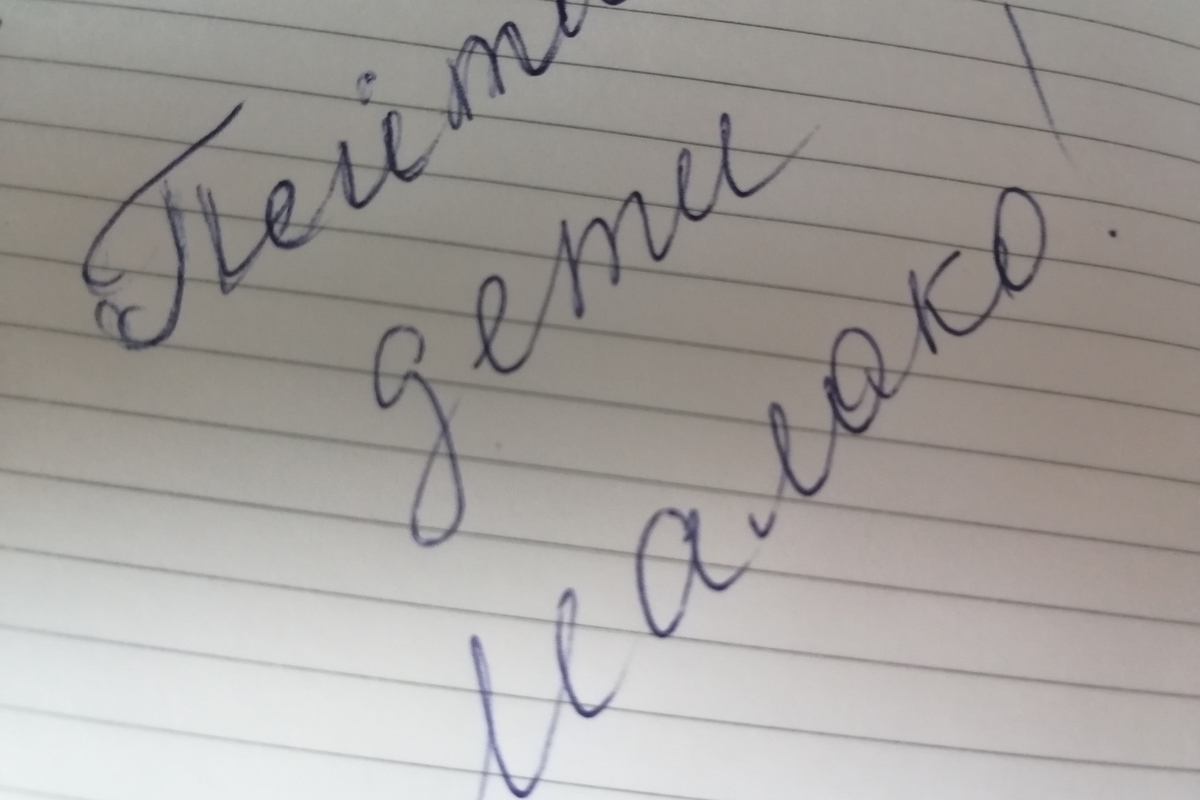 Пейте
дети
Малако!